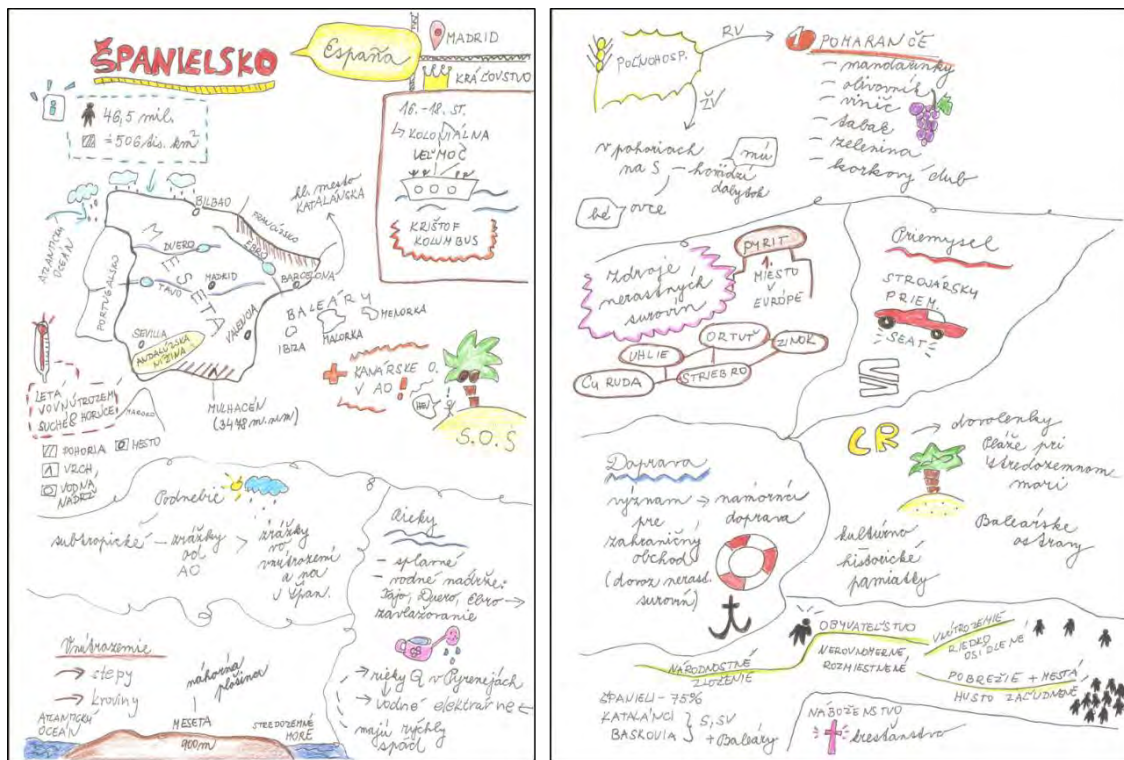 ŠPANIELSKO
España
MADRID
KRÁĽOVSTVO
46,5 mil.
≐ 506 tis. km²
16.-18. ST.
↳ KOLONIÁLNA
VEĽMOČ
KRIŠTOF
KOLUMBUS
hl. mesto
KATALÁNSKA
ATLANTICKÝ
OCEÁN
BILBAO
FRANCÚZSKO
DUERO
EBRO
BARCELONA
MESETA
MADRID
TAJO
PORTUGALSKO
VALENCIA
BALEÁRY
MENORKA
MALORKA
IBIZA
SEVILLA
ANDALÚZSKA
NÍŽINA
KANÁRSKE O.
V AO!
S.O.S
LETÁ
VO VNÚTROZEMÍ
SUCHÉ & HORÚCE
MAROKO
MULHACÉN
(3478 m.n.m)
POHORIA
MESTO
VRCH,
VODNÁ
NÁDRŽ
Podnebie
subtropické – zrážky
od
AO
>
zrážky
vo
vnútrozemí
a na
v Špan.
Rieky
– splavné
– vodné nádrže:
Tajo, Duero, Ebro →
zavlažovanie
→ rieky Q v Pyrenejách
→ vodné elektrárne ←
majú rýchly
spád
Vnútrozemie
→ stepy
→ kroviny
náhorná
plošina
ATLANTICKÝ
OCEÁN
MESETA
900m
STREDOZEMNÉ
MORE
POĽNOHOSP.
RV
1
POMARANČE
– mandarínky
– olivovník
– vinič
– tabak
– zelenina
– korkový dub
ŽV
v pohoriach
na S – hovädzí
dobytok
mú
bé
ovce
zdroje
nerastných
surovín
PYRIT
1.
MIESTO
V
EURÓPE
UHLIE
ORTUŤ
ZINOK
Cu RUDA
STRIEBRO
Priemysel
STROJÁRSKY
PRIEM.
SEAT
CR → dovolenky
Pláže pri
Stredozemnom
mori
Baleárske
ostrovy
kultúrno
historické
pamiatky
Doprava
význam → námorná
pre
doprava
zahraničný
obchod
(dovoz nerast.
surovín)
OBYVATEĽSTVO
NEROVNOMERNE
ROZMIESTNENÉ
VNÚTROZEMIE
RIEDKO
OSÍDLENÉ
POBREŽIE + MESTÁ
HUSTO ZAĽUDNENÉ
NÁRODNOSTNÉ
ZLOŽENIE
ŠPANIELI – 75%
KATALÁNCI
BASKOVIA
} S, SV
+ Baleáry
NÁBOŽENSTVO
kresťanstvo